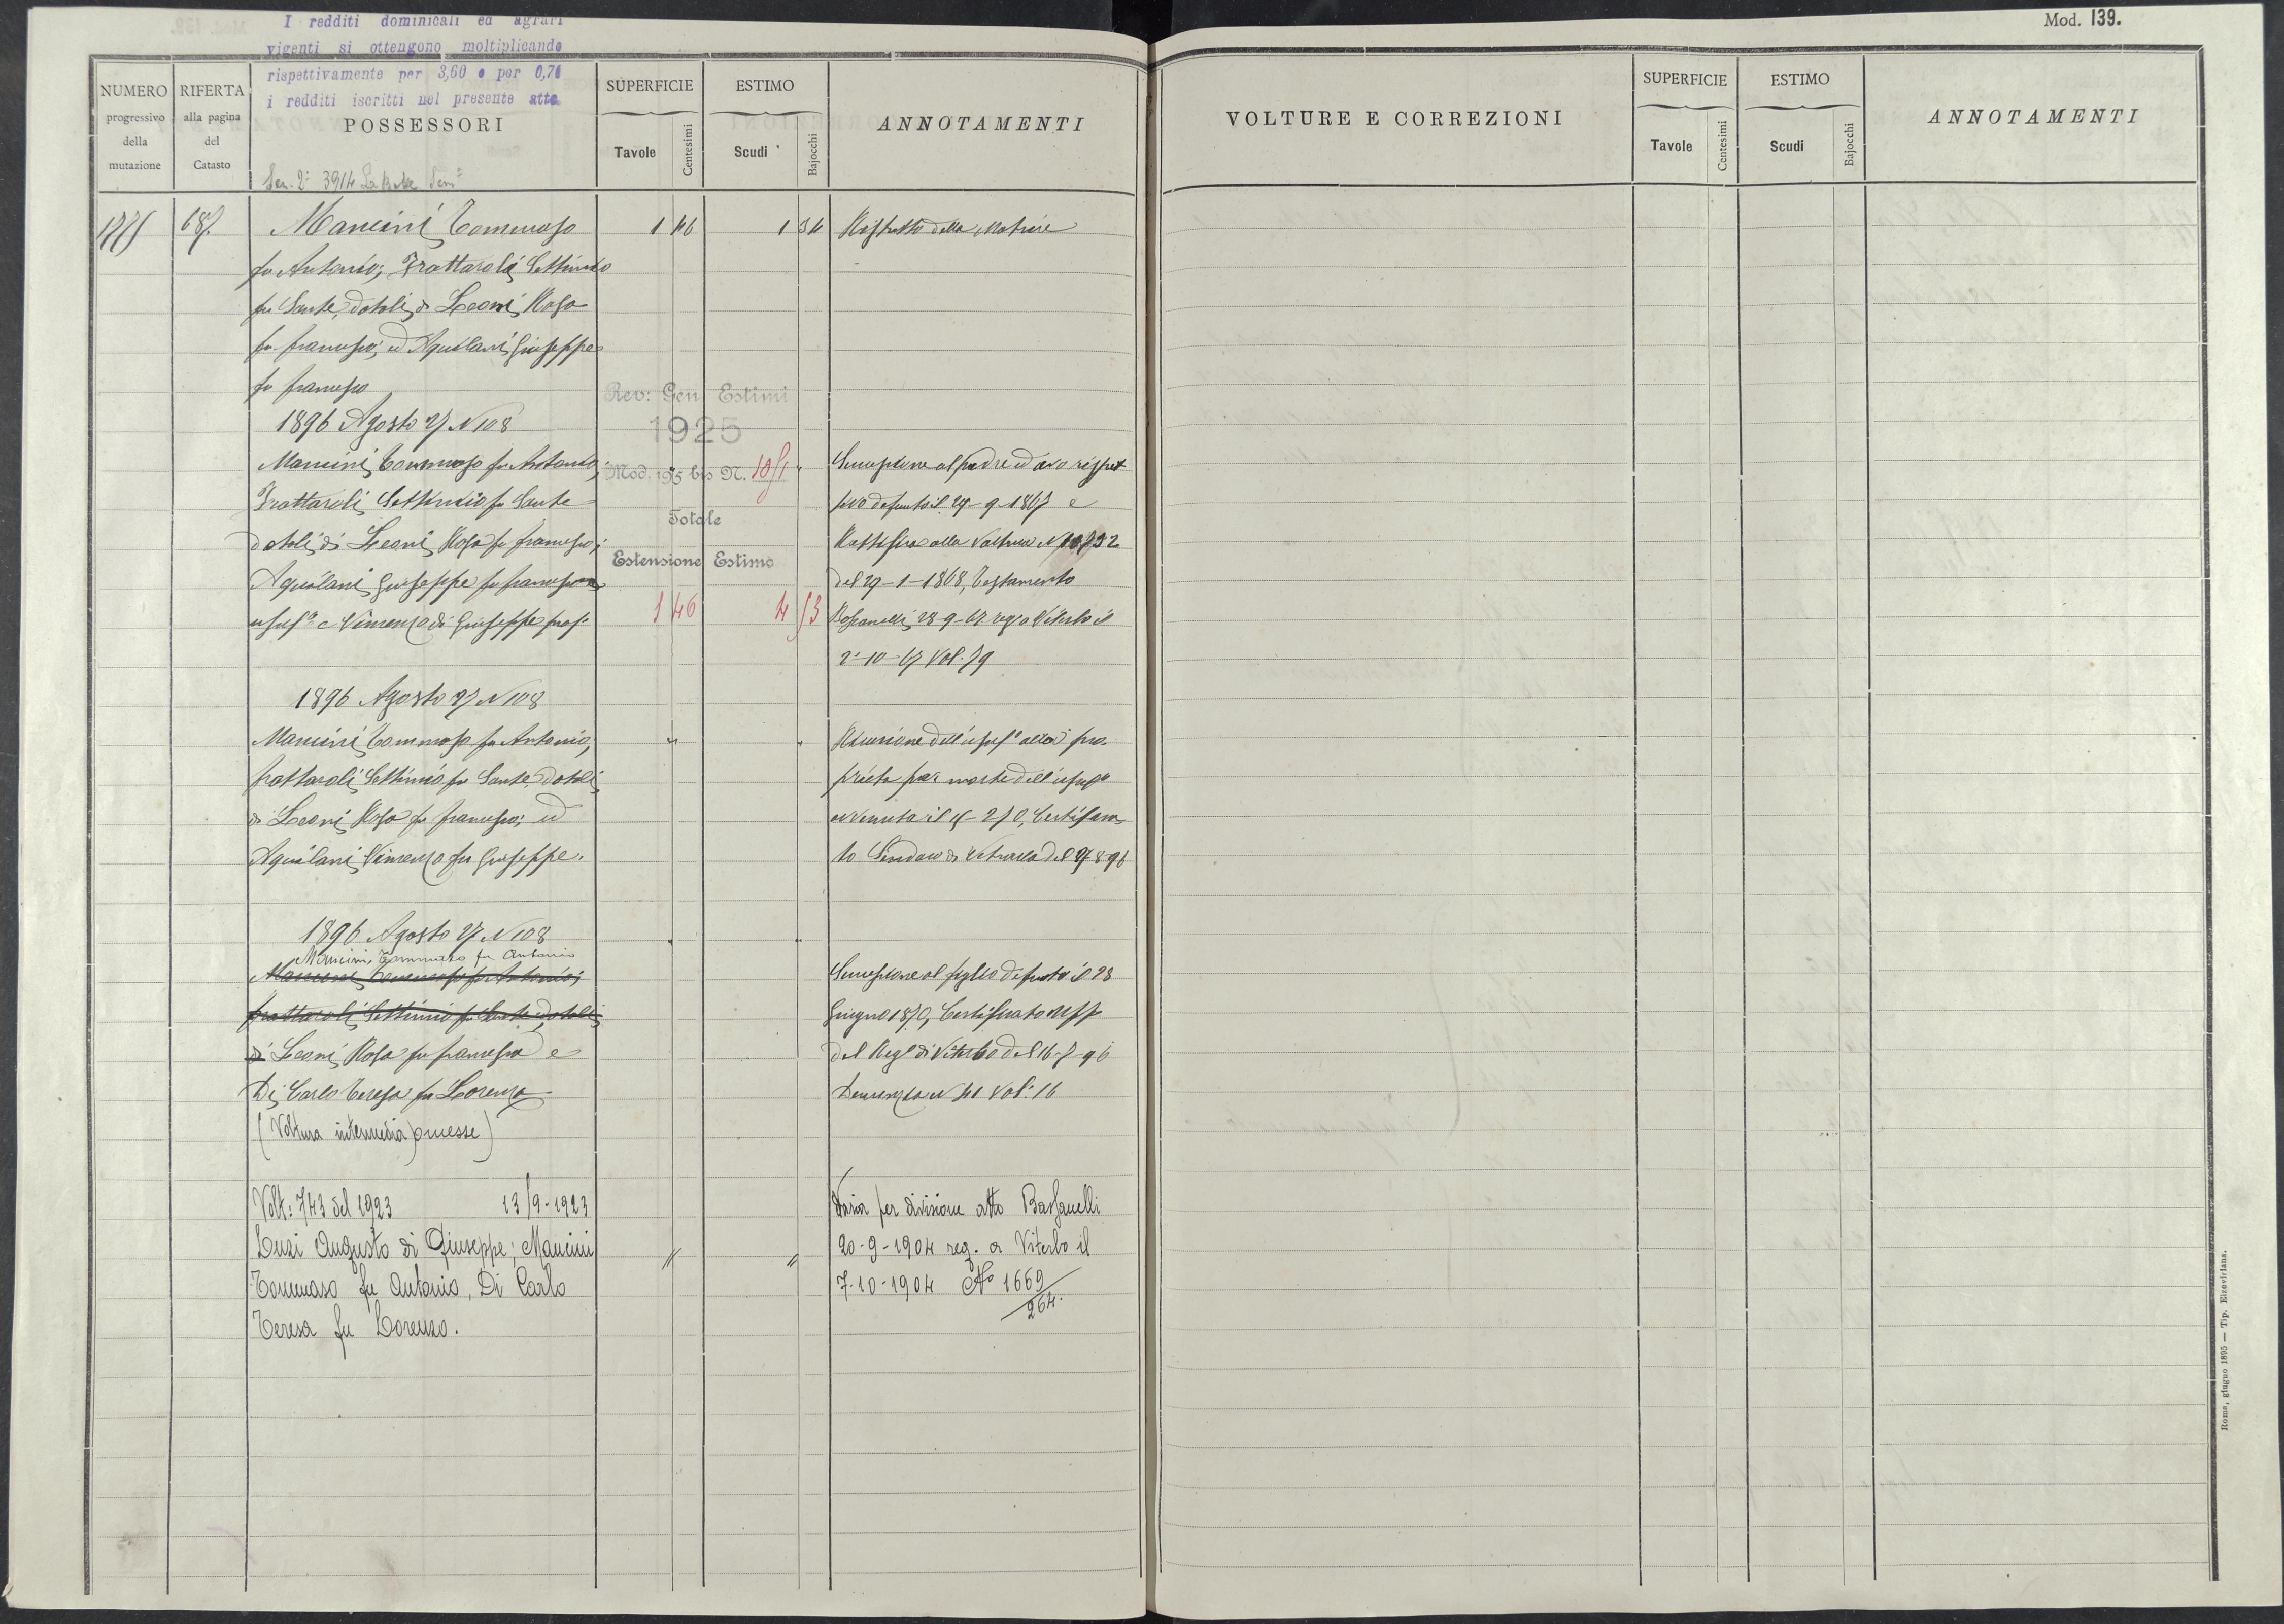 I redditi dominicali ed agrari
vigenti si ottengono moltiplicando
rispettivamente per 3,60 e per 0,71
i redditi iscritti nel presente atto
NUMERO progressivo della mutazione
RIFERTA alla pagina del Catasto
POSSESSORI
SUPERFICIE
Tavole
Centesimi
ESTIMO
Scudi
Bajocchi
ANNOTAMENTI
Sez. 2ª 3914
687
Mancini Tommaso
1 46
1 34
Ristretto della Matrice
fu Antonio; Frattaroli Settimio
fu Sante, dotali di Leoni Rosa
fu Francesco; ed Aquilani Giuseppe
fu Francesco
Rev: Gen Estimi
1925
Mod. 195 bis N.
Totale
Estensione Estimo
1 46
4 53
1896 Agosto 27 N 108
Mancini Tommaso fu Antonio;
Frattaroli Settimio fu Sante
dotali di Leoni Rosa fu Francesco;
Aquilani Giuseppe fu Francesco
usufº e Vincenzo di Giuseppe prop.
Successione al padre ed avo rispet
tivo defunto il 24-9-1867 e
Rettifica alla Voltura N
del 29-1-1868, Testamento
Bassanelli 28-9-67 reg a Viterbo il
2-10-67 Vol. 79
1896 Agosto 27 N 108
Mancini Tommaso fu Antonio;
Frattaroli Settimio fu Sante dotali
di Leoni Rosa fu Francesco; ed
Aquilani Vincenzo fu Giuseppe.
Riunione dell'usufº alla pro
prietà per morte dell'usufº
avvenuta il
to Sindaco di Vetralla del 27 8-96
1896 Agosto 27 N 108
Mancini Tommaso fu Antonio
Mancini Tommaso fu Antonio;
Frattaroli Settimio fu Sante dotali
di Leoni Rosa fu Francesco e
Di Carlo Teresa fu Lorenzo
(Voltura intermedia omessa)
Successione al figlio defunto il 28
Giugno 1870, Certificato Uff
del Reg di Viterbo del 16-7-96
Denunzia N 41 Vol. 16
Volt: 743 del 1923 13/9-1923
Luzi Augusto di Giuseppe; Mancini
Tommaso fu Antonio, Di Carlo
Teresa fu Lorenzo.
per divisione atto Bassanelli
20-9-1904 reg. a Viterbo il
7-10-1904 Nº 1669/264.
Mod. 139.
VOLTURE E CORREZIONI
SUPERFICIE
Tavole
Centesimi
ESTIMO
Scudi
Bajocchi
ANNOTAMENTI
Roma, giugno 1895 — Tip. Elzeviriana.